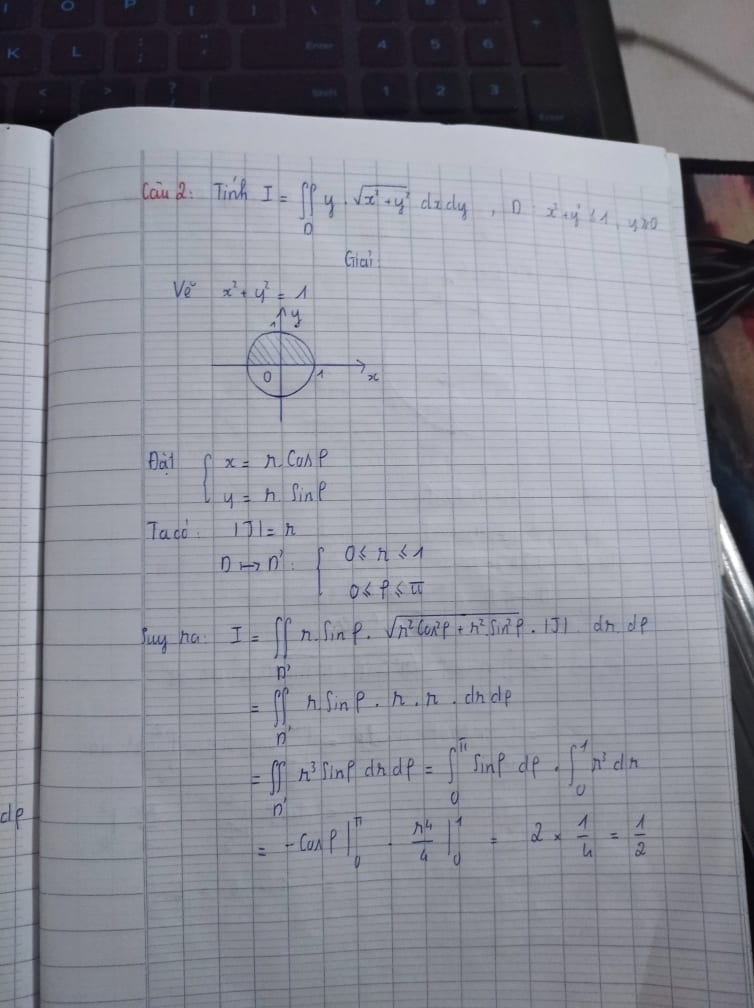 K L : ; " ' Enter 4 5 6
< > ? / Shift 1 2 3
Enter
Câu 2: Tính I = ∬_D y . √(x² + y²) dxdy , D : x² + y² ≤ 1, y ≥ 0
Giải:
Vẽ x² + y² = 1
1 y
0 1 x
Đặt { x = r.Cosφ
y = r Sinφ
Ta có: |J| = r
D ↦ D' : { 0 ≤ r ≤ 1
0 ≤ φ ≤ π
Suy ra: I = ∬_D' r.Sinφ . √(r²Cos²φ + r².Sin²φ) . |J| dr.dφ
= ∬_D' r.Sinφ . r . r . drdφ
= ∬_D' r³ Sinφ drdφ = ∫₀^π Sinφ dφ . ∫₀^1 r³ dr
dφ
= -Cosφ |₀^π . r⁴/4 |₀^1 = 2 × 1/4 = 1/2